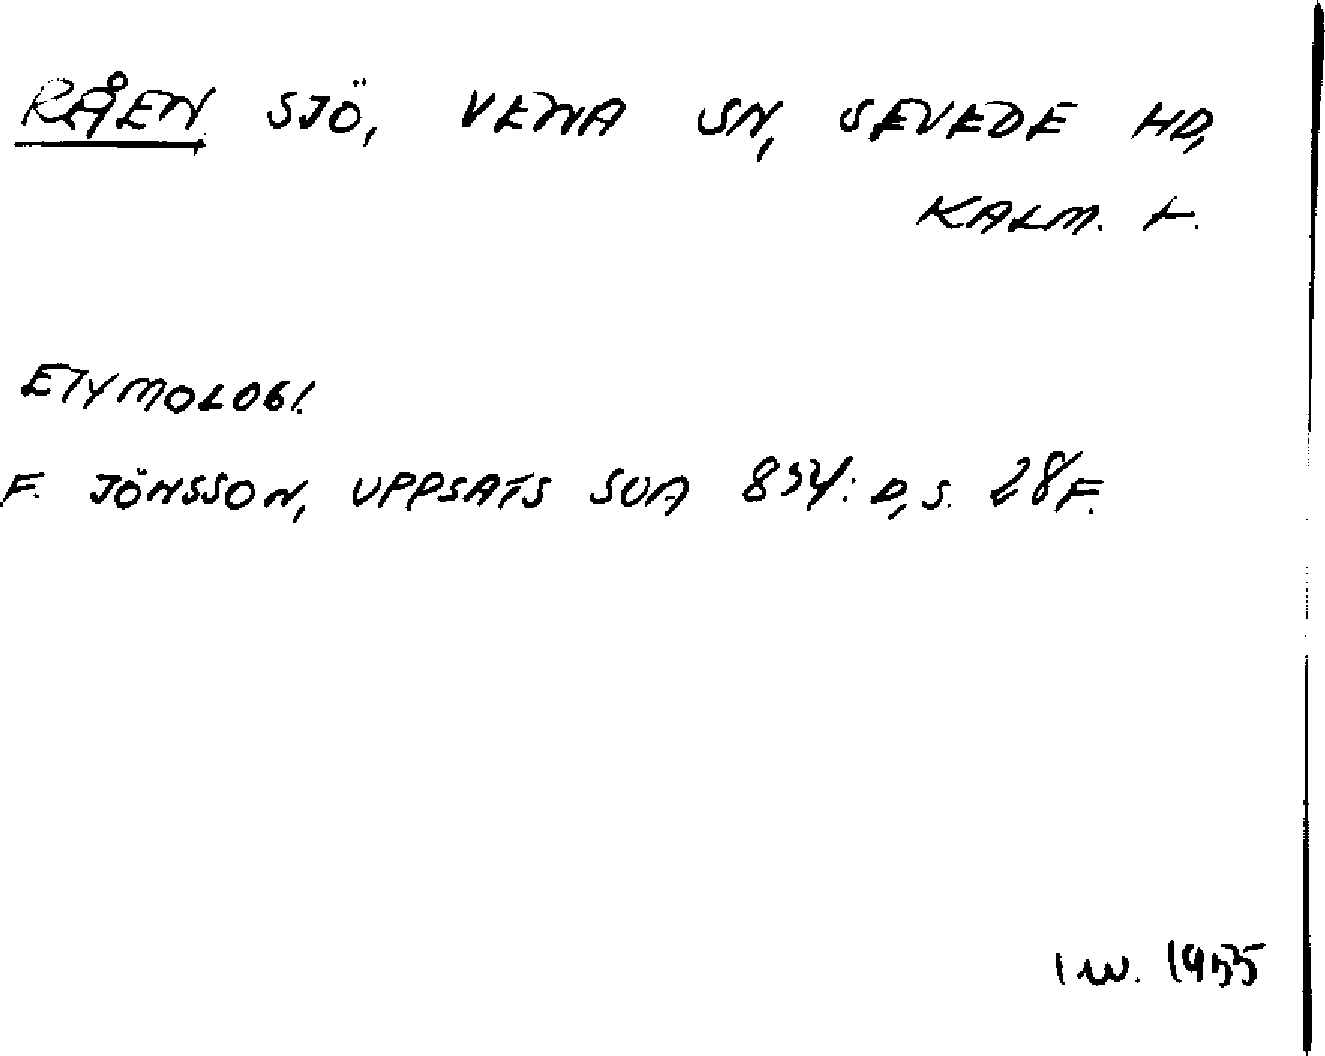 RÅEN SJÖ, VENA SN, SEVEDE HD,
KALM. L.
ETYMOLOGI.
F. JÖNSSON, UPPSATS SOA 834: D, S. 28 F.
I W. 1955